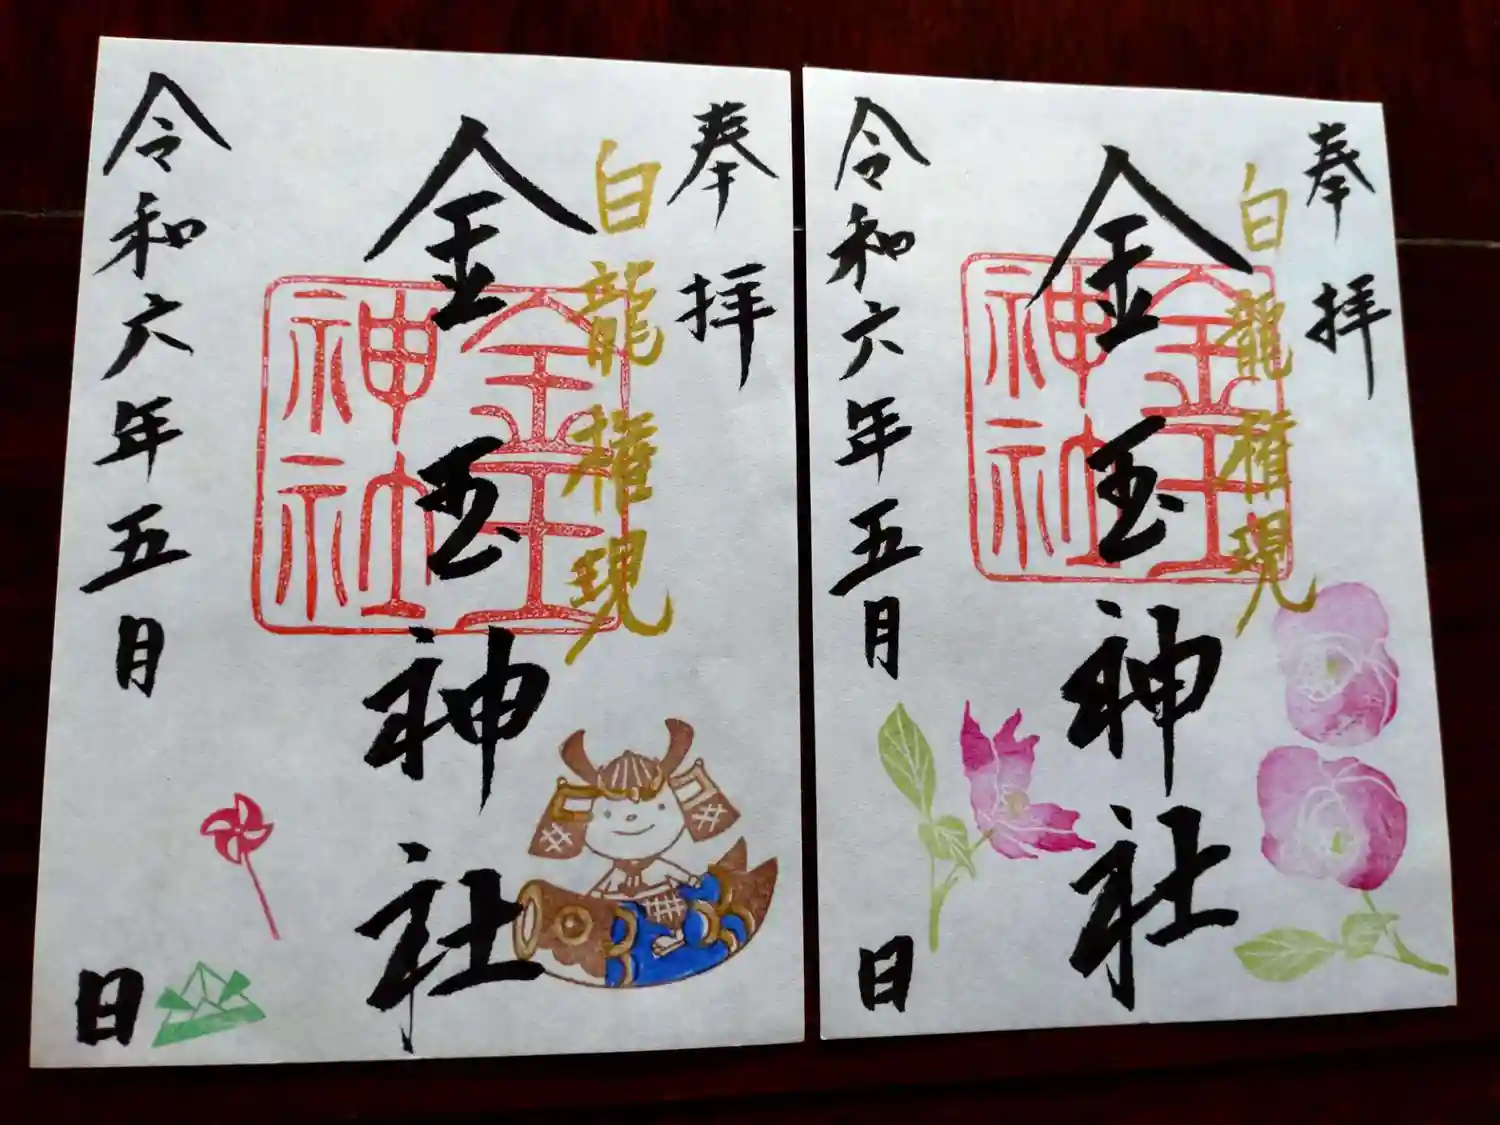 奉拝
白龍権現
金玉神社
金玉神社
令和六年五月 日
奉拝
白龍権現
金玉神社
金玉神社
令和六年五月 日